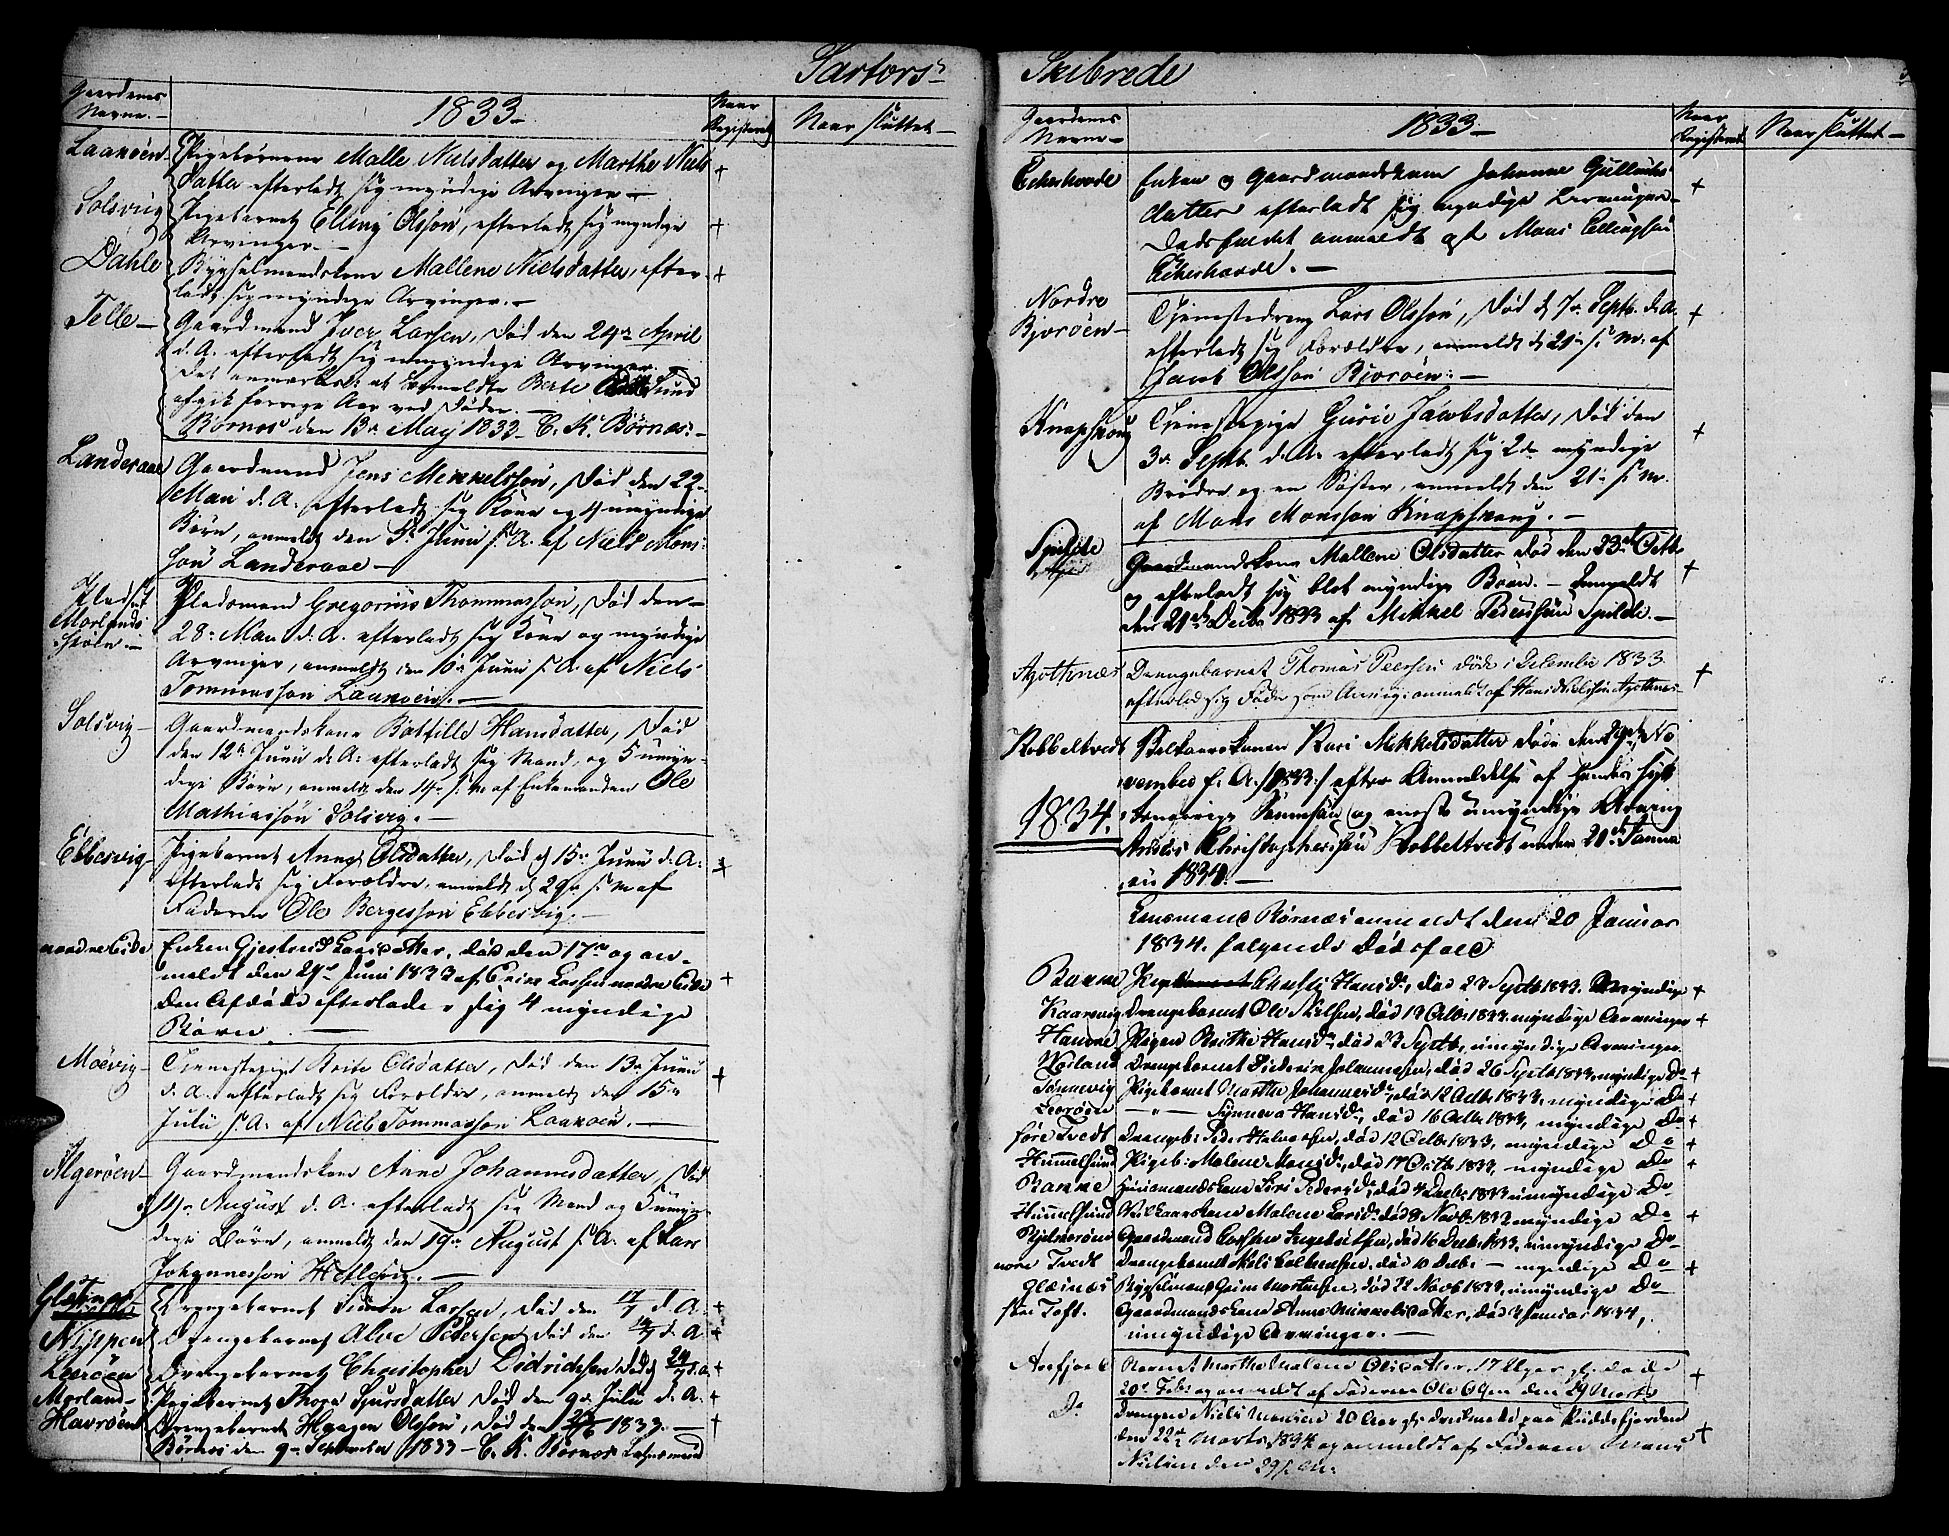 Sartors-
Gaardenes
Navne.-
1833-
Naar
Registeret
Naar sluttet-
Laanöen
Pigebørnene Malle Nielsdatter og Marthe Niels
datter efterladt sig myndige Arvinger - +
Solsvig
Pigebarnet Elling Olssön, efterladt sig myndige +
Arvinger.-
Dahle
Bygselmandskone Mallene Nielsdatter, efter- +
ladt sig myndige Arvinger.-
Telle-
Gaardmand Iver Larsen, död den 24de April
d. A. efterladt sig umyndige Arvinger.
Berte
afgik forrige Aar ved Döden.-
Börnes den 13de May 1833 C. K. Börnes.-
Landeraae
Gaardmand Jens Mikkelssön, död den 22-
Mai d. A. efterladt sig Kone og umyndige
Börn, anmeldt den 5te Junii s. A. af Niels Mons-
sön Landeraae-
Pladset
Morlands
Pladsmand Gregorius Thommassön, död den-
28- Mai d. A. efterladt sig Kone og myndige
Arvinger, anmeldt den Junii s. A. af Niels
Tommassön Laanöen.-
Solsvig-
Gaardmandskone Botfille Hansdatter, död
den 12te Junii d. A. efterladt sig Mand, og 5 umyn-
dige Börn, anmeldt den 14de s. M. af Enkemanden Ole
Mathiassön Solsvig.-
Ebbesvig-
Pigebarnet Anne Olsdatter, död d. 15de Junii d. A. +
efterladt sig Forældre, anmeldt d. 29de s. M. af
Faderen Ole Bergessön Ebbesvig.-
nordre Eide
Enken Gjertrud Larsdatter, död den 17de og an-
meldt den 24de Juni 1833 af Larsen nordre Eide +
den Afdöde efterlade sig 4 myndige
Börn.-
Moevig-
Tjenestepige Brite Olsdatter, död den 13de Junii
d. A. efterladt sig Forældre, anmeldt den 15de +
Julii s. A. af Niels Tommassön Laanöen.-
Algeröen-
Gaardmandskone Anne Johannesdatter, död
August d. A. efterladt sig Mand og 5 umyn-
dige Börn, anmeldt den 19de August s. A. af Lars
Johannessön Hetlevig.-
Glesnæs
Drengebarnet Simon Larsen, död den d. A. +
Nippen
Drengebarnet Alve Pedersen, död den d. A. +
Leeröen
Drengebarnet Christopher Didrichsen död d. d. A. +
Morland-
Pigebarnet Thora Sjursdatter död den 9de Julii d. A. +
Havröen
Drengebarnet Haagen Olssön, död den 1833.- +
Börnes den 9de September 1833- C. K. Börnes Lensmand
Skibrede
Gaardenes
Navne-
1833-
Naar
Registeret
Naar sluttet-
Ekerhovde
Enken og Gaardmandskone Johanne Gulliks
datter efterladt sig myndige Arvinger- +
Dödsfaldet anmeldt af Mons Ellingsen
Ekerhovde.-
Nordre
Bjoröen-
Tjenestedreng Lars Olssön, död d. 7de Septb. d. A. +
efterladt sig Forældre, anmeldt d. 21de s. M. af
Jacob Olssön Bjoröen.-
Knapskoug
Tjenestepige Guri Jacobsdatter, död den
3de Septb. d. A. efterladt sig 2de myndige +
Brödre og en Söster, anmeldt den 21de s. M.
af Mons Monssön Knapskoug.-
Spilde
Gaardmandskone Mallene Olsdatter död den 23de Octb.
og efterladt sig blot myndige Börn.- Anmeldt +
den 21de Decbr 1833 af Mikkel Pederssön Spilde.-
Agotnæs
Drengebarnet Thomas Peersen döde i December 1833. +
efterlod sig Fader som Arving: anmeldt af Hans Nielssön Agotnes-
Kobbeltvedt
Kari Mikkelsdatter döde den 29de No
vember f. A. /1833/ efter Anmeldelse af hendes
Sönnesön og eneste umyndige Arving
1834.
Anders Christophersen Kobbeltvedt under 20de Janua
rii 1834.-
Lensmand Börnæs anmeldt den 20 Januar
1834. følgende Dödsfald
Ranne
Hansdr, död 23 Septb 1833. myndige +
Kaarevig
Drengebarnet Ole Nilsen, död 19 Octb. 1833. myndige Arvinger +
Hamre
Pigen Brithe Hansdr, död 23 Septb, umyndige Arvinger
Vaaland
Drengebarnet Diderik Johannesen, död 26 Septb 1833, myndige Do +
Tönnevig
Pigebarnet Marthe Johannesdr, död 12 Octb. 1833, myndige Do +
Leeröen
- " - Synneva Hansdr, död 16 Octb. 1833, myndige Do +
söre Tvedt
Drengeb. Peder Halvorsen, död 12 Octb 1833, myndige Do +
Hummelsund
Pigeb. Malene Monsdr, död 17 Octb 1833, myndige Do +
Ranne
Huusmandskone Siri Pedersdr, död 4 Decb. 1833 umyndige Do
Hummelsund
Malene Larsdr död 8 Novb. 1833 myndige Do +
Gaardmand död 16 Decb. 1833, umyndige Do
nore Tvedt
Drengebarnet död 10 Decb. - myndige Do +
Glæsnæs
Bygselmand Mortensen, död 22 Novb 1833, umyndige Do
store Toft.
Gaardmandskone Anne Mikkelsdatter, död Januar 1834,
umyndige Arvinger.-
Arefjord
Barnet Marthe Malene Olsdatter, 17 Uger gl. döde +
20de Feb. og anmeldt af Faderen Ole Olsen den 29 Marts
Do
Drengen Niels Monsen 20 Aar gl. druknede paa Puddefjorden
den 22de Marts 1834 og anmeldt af Faderen Mons +
Nielsen den 29 s. M.